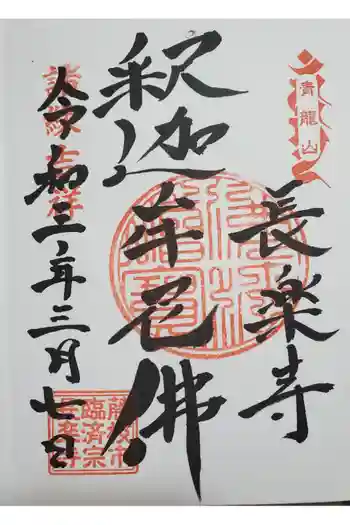 青龍山
長楽寺
釈迦牟尼佛
令和三年三月七日
藤枝市
臨済宗
長楽寺